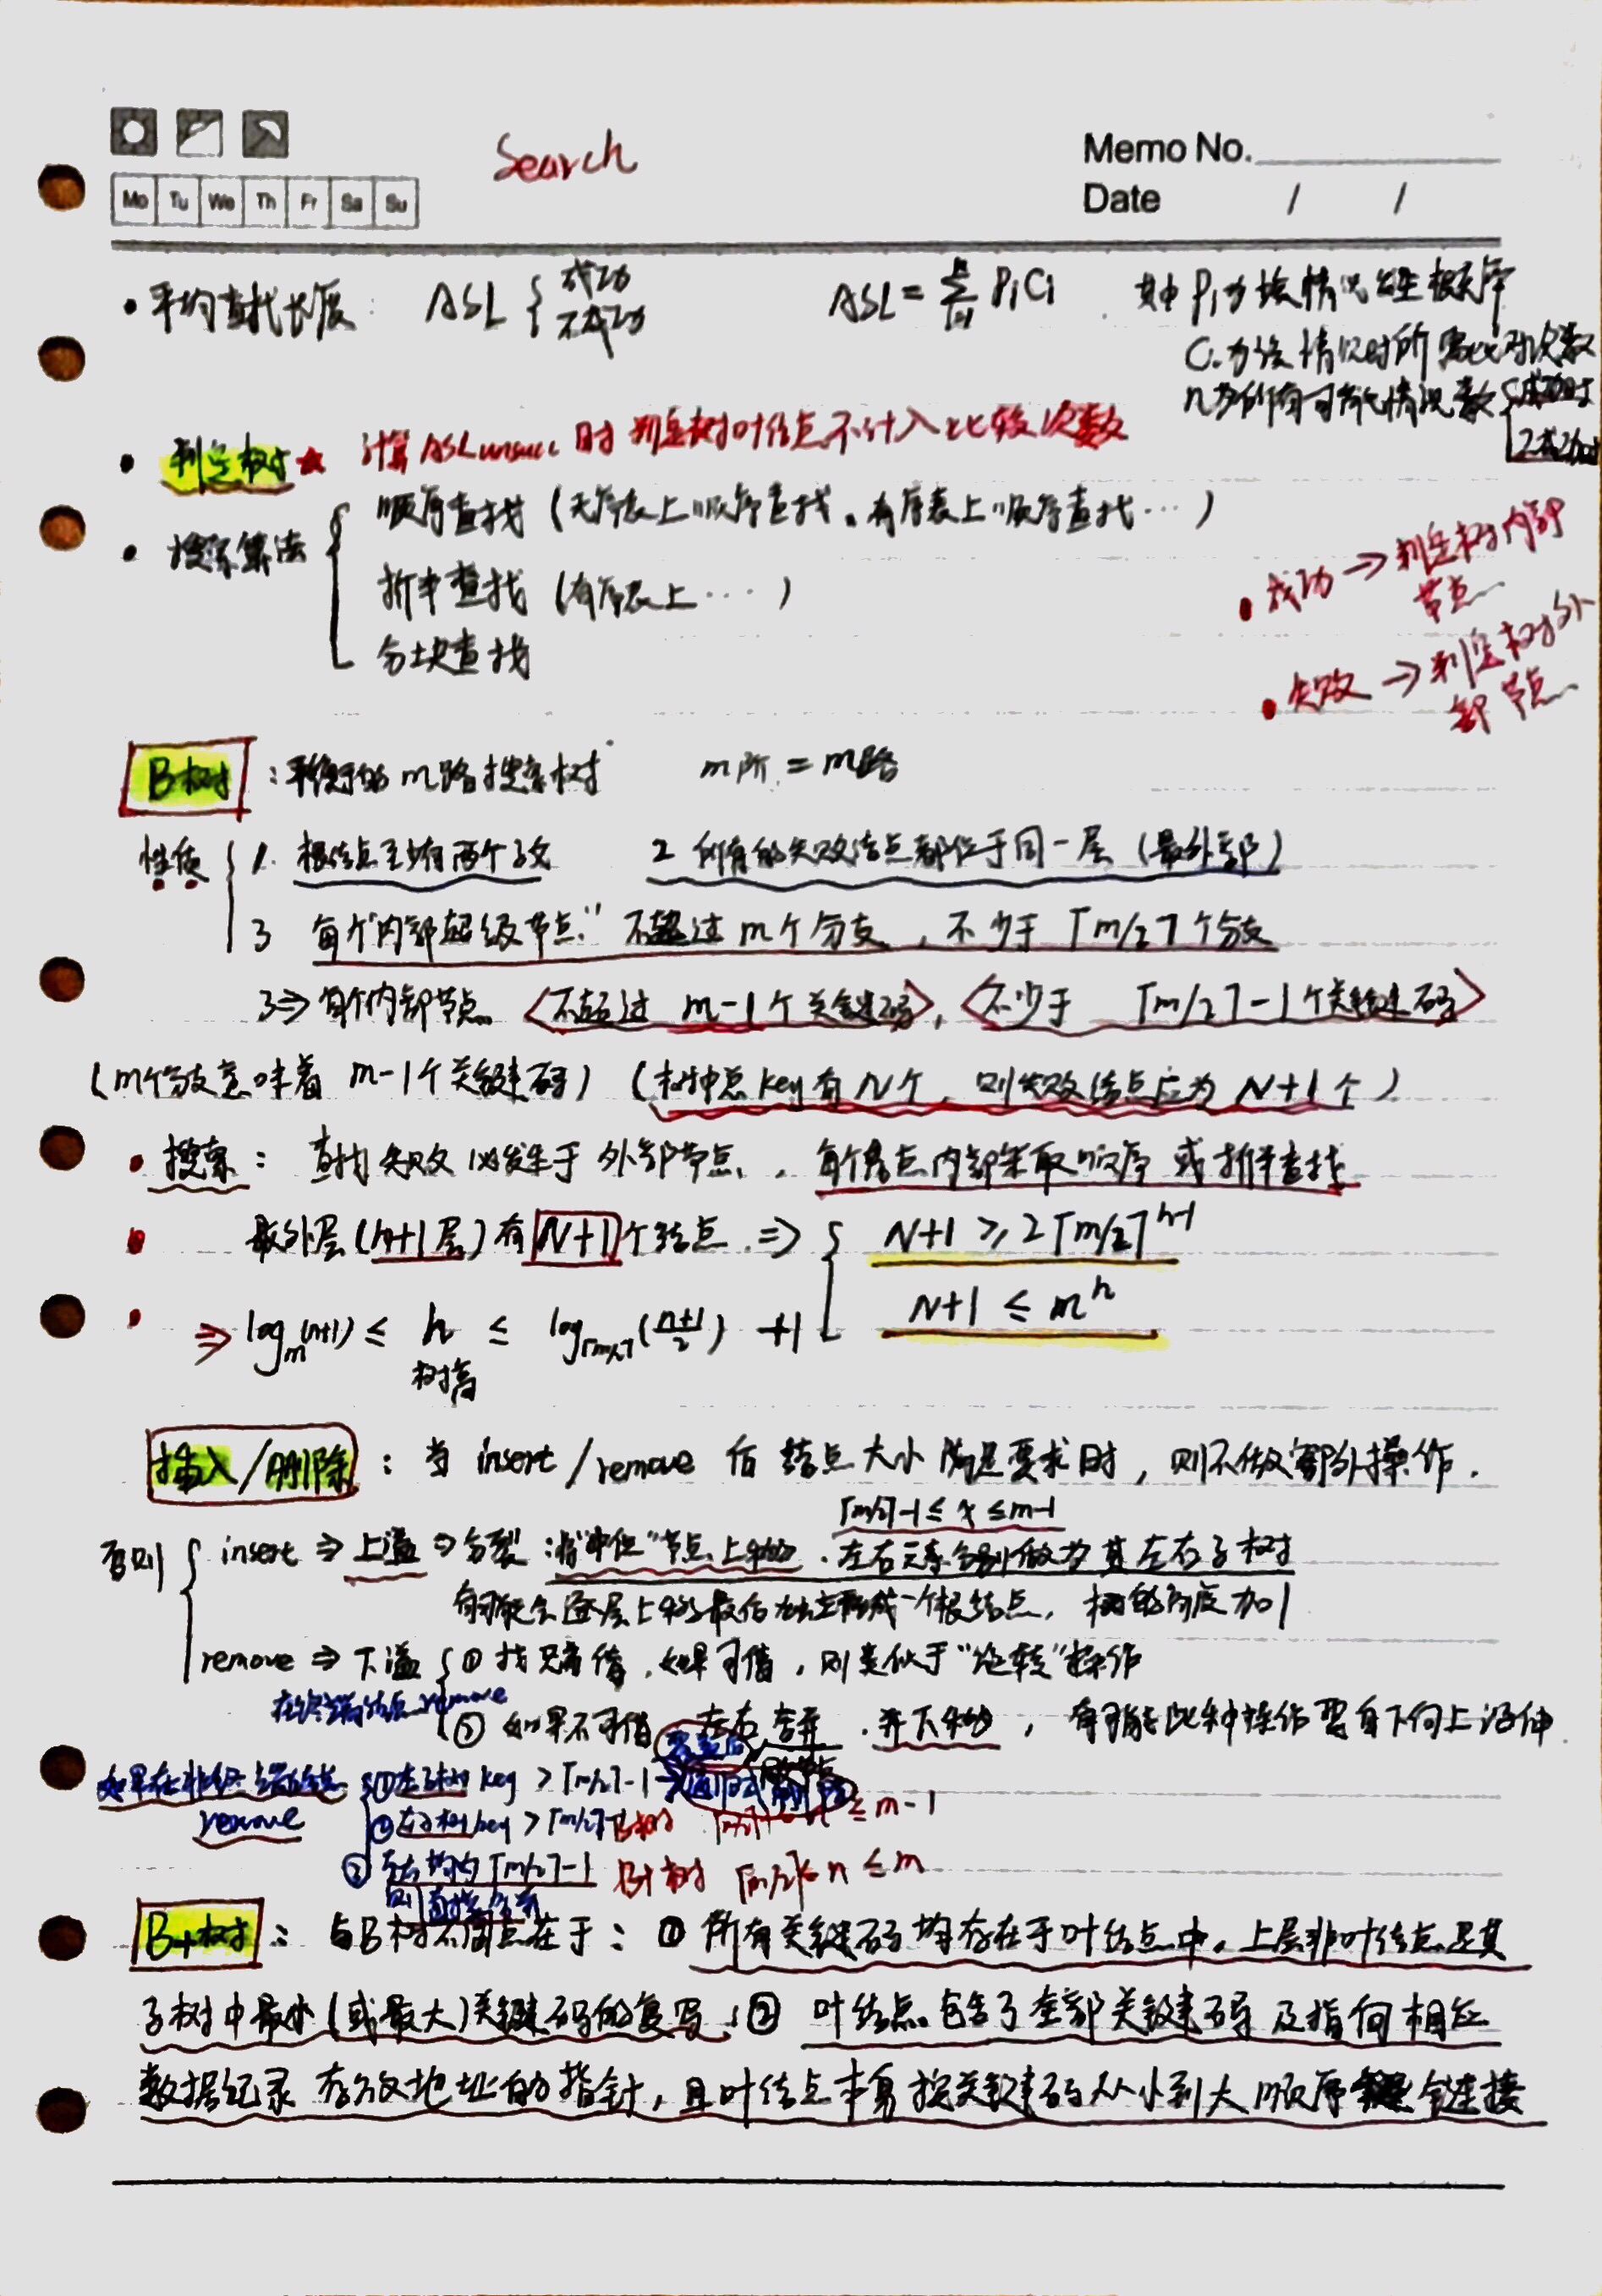 Search
Memo No.
Mo Tu We Th Fr Sa Su
Date / /
• 平均查找长度: ASL { 成功 不成功 ASL = Σ PiCi 其中 Pi为该情况发生概率
Ci为该情况时所需比对次数
n为所有可能情况数 { 成功时 不成功时
• 判定树 ★ 计算ASLunsucc时判定树叶结点不计入比较次数
• 搜索算法 { 顺序查找 (无序表上顺序查找。有序表上顺序查找…)
折半查找 (有序表上…)
分块查找
• 成功 → 判定树内部
节点
• 失败 → 判定树外
部节点
B树 : 平衡的m路搜索树 m阶 = m路
性质 { 1. 根结点至少有两个子女 2 所有的失败结点都位于同一层 (最外部)
3 每个"内部超级节点" 不超过m个分支, 不少于 ⌈m/2⌉个分支
3⇒ 每个内部节点 <不超过 m-1个关键码>, <不少于 ⌈m/2⌉-1个关键码>
(m个分支意味着 m-1个关键码) (树中总key有N个, 则失败结点应为 N+1个)
• 搜索: 查找失败必发生于外部节点, 每个结点内部采取顺序或折半查找
• 最外层(h+1层)有 N+1 个结点 ⇒ { N+1 ≥ 2⌈m/2⌉^(h-1)
N+1 ≤ m^h
• ⇒ log_m(n+1) ≤ h ≤ log_⌈m/2⌉((n+1)/2) +1
树高
插入/删除 : 当 insert/remove 后 结点大小满足要求时, 则不做额外操作.
⌈m/2⌉-1 ≤ x ≤ m-1
否则 { insert ⇒ 上溢 ⇒ 分裂:将"中位"节点上移. 左右元素分别做为其左右子树
有可能会逐层上移最后独立形成一个根结点, 树的高度加1
remove ⇒ 下溢 { ① 找兄弟借, 如果可借, 则类似于"旋转"操作
在终端结点remove
② 如果不可借 左右合并. 并下移, 有可能此种操作要自下向上沿伸
如果在非终端结点 { ①左子树 key > ⌈m/2⌉-1 →
remove ②右子树key > ⌈m/2⌉- B树 ≤ m-1
③ 左右均为⌈m/2⌉-1 B+树 ⌈m/2⌉≤ n ≤ m
则直接合并
B+树 : 与B树不同点在于: ① 所有关键码均存在于叶结点中, 上层非叶结点是其
子树中最小(或最大)关键码的复写, ② 叶结点包含了全部关键码及指向相应
数据记录存放地址的指针, 且叶结点本身按关键码从小到大顺序链接